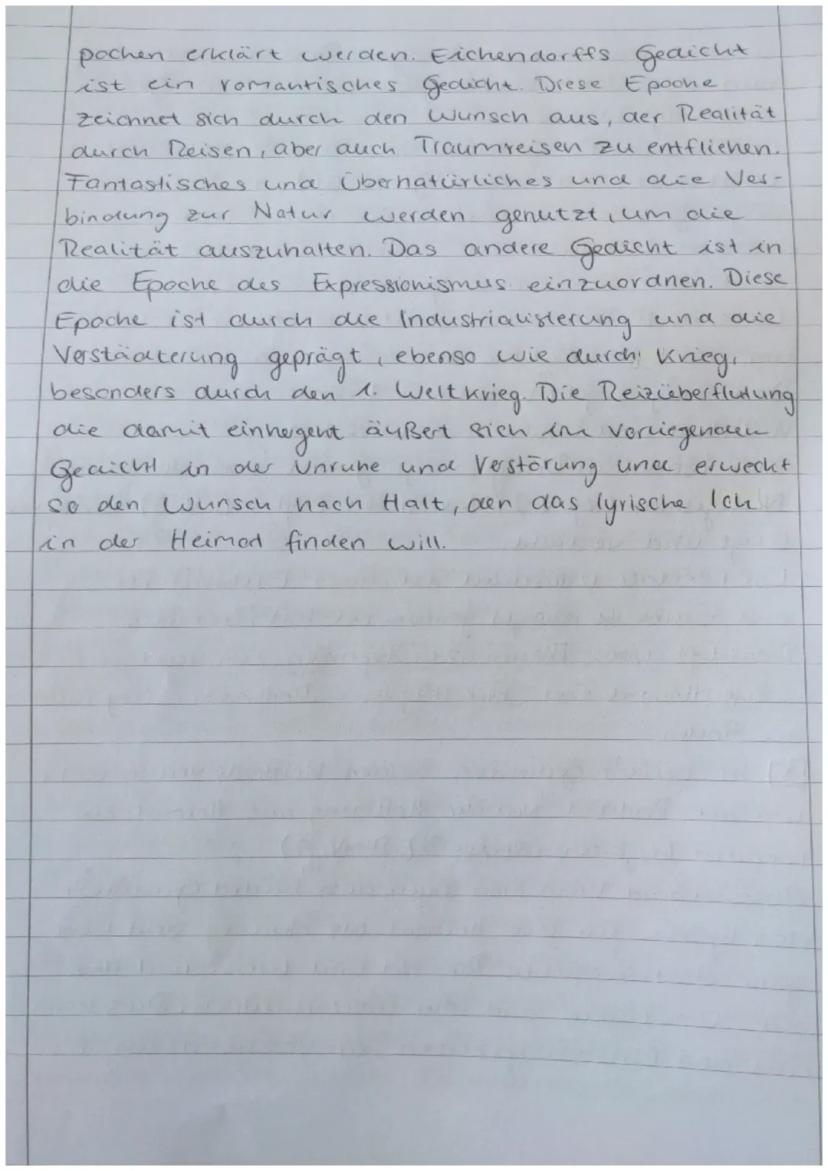 pochen erklärt werden. Eichendorffs Gedicht
ist ein romantisches Gedicht. Diese Epoche
zeichnet sich durch den Wunsch aus, der Realität
durch Reisen, aber auch Traumreisen zu entfliehen.
Fantastisches und Übernatürliches und die Ver-
bindung zur Natur werden genutzt, um die
Realität auszuhalten. Das andere Gedicht ist in
die Epoche des Expressionismus einzuordnen. Diese
Epoche ist durch die Industrialisierung und die
Verstädterung geprägt, ebenso wie durch Krieg,
besonders durch den 1. Weltkrieg. Die Reizüberflutung
die damit einhergent äußert sich im vorliegenden
Gedicht in der Unruhe und Verstörung und erweckt
so den Wunsch nach Halt, den das lyrische Ich
in der Heimat finden will.